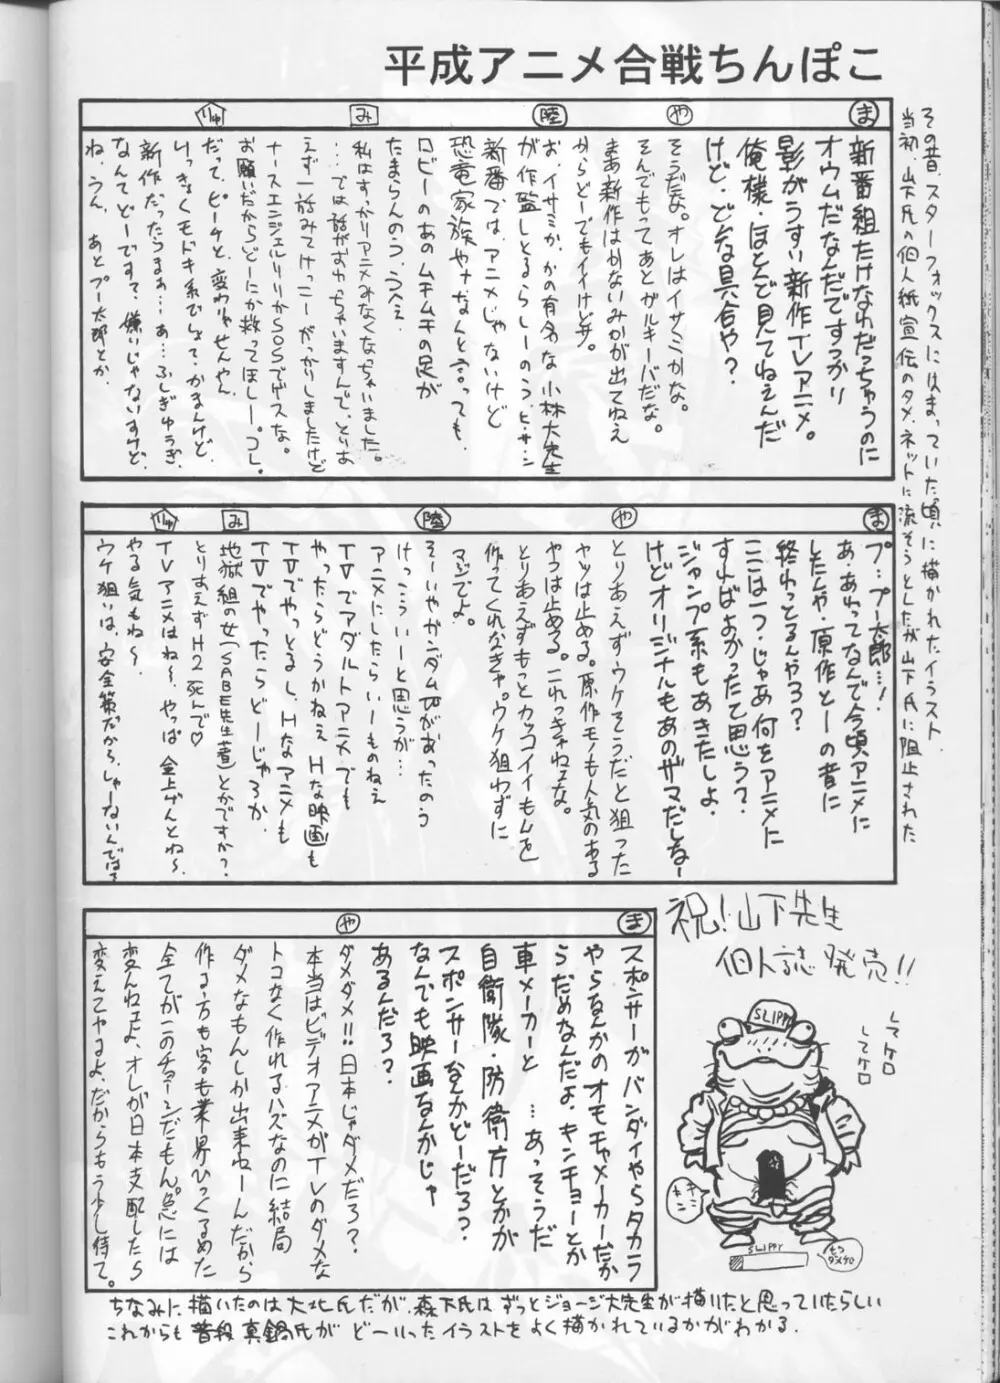 平成アニメ合戦ちんぽこ
その昔、スターフォックスにはまっていた頃に描かれたイラスト
当初、山下氏の個人紙宣伝のタメ、ネットに流そうとしたが山下氏に阻止された
ま
新番組たけなわだっちゅうのに
オウムだなんだですっかり
影がうすい新作TVアニメ。
俺様・ほとんど見てねえんだ
けど、どんな具合や?
や
そうだな。オレはイサミかな。
そんでもってあとガルキーバだな。
まあ新作はかないみかが出てねえ
からどーでもイイけどサ。
陸
お、イサミか、かの有名な小林大先生
が作監しとるらしーのう、ヒ・サ・シ
新番では、アニメじゃないけど
恐竜家族やナなんと言っても、
ロビーのあのムチムチの足が
たまらんのう、うへえ
み
私はすっかりアニメみなくなっちゃいました。
…では話がおわっちゃいますんで、とりあ
えず一話みてけっこーがっかりしましたけど
ナースエンジェルリリカSOSでゲスな。
お願いだからどーにか救ってほしー。コレ。
りゅ
だって、ピーチと、変わりゃせんやん
けっきょくモドキ系でしょて・かまんけど、
新作だったらまぁ…あ…ふしぎゆうぎ、
なんてどーですて、嫌いじゃないすけど、
ね、うん、あとプー太郎とか、
ま
プ…プー太郎…!
あ・あれってなんで今頃アニメに
したんや・原作とーの昔に
終わっとるんやろ?
ここは一つ・じゃあ何をアニメに
すればよかったて思う?
ジャンプ系もあきたしよ、
けどオリジナルもあのザマだしなー
や
とりあえずウケそうだと狙った
ヤツは止める。原作モノも人気のある
やつは止める。これっきゃねェな。
とりあえずもっとカッコイイもんを
作ってくれなきゃ。ウケ狙わずに
マジでよ。
陸
そーいやガンダムWがあったのう
けっこういーと思うが…
アニメにしたらいーものねえ
TVでアダルトアニメでも
やったらどうかねぇHな映画も
TVでやっとるし、Hなアニメも
TVでやったらどーじゃろか、
み
地獄組の女(SABE先生著)とかですか?
とりあえずH2死んで♡
りゅ
TVアニメはね〜、やっぱ全上げんとね〜、
やる気もね〜
ウケ狙いは、安全策だから、しゃーないんでは?
ま
スポンサーがバンダイやらタカラ
やらなんかのオモチャメーカーだか
らだめなんだよ、キンチョーとか
車メーカーと…あっそうだ
自衛隊・防衛庁とかが
スポンサーなんかどーだろ?
なんでも映画なんかじゃ
あるんだろ?
や
ダメダメ!!日本じゃダメだろ?
本当はビデオアニメがTVのダメな
トコなく作れるハズなのに結局
ダメなもんしか出来ねーんだから
作る方も客も業界ひっくるめた
全てがこのチョーシだもん。急には
変んねェよ、オレが日本支配したら
変えてやるよ、だからもう少し待て。
祝!山下先生
個人誌発売!!
SLIPPY
してケロ
してケロ
SLIPPY
もう
ダメケロ
ちなみに描いたのは大北氏だが、森下氏はずっとジョージ大先生が描いたと思っていたらしい
これからも普段真鍋氏がどーいったイラストをよく描かれているかがわかる。